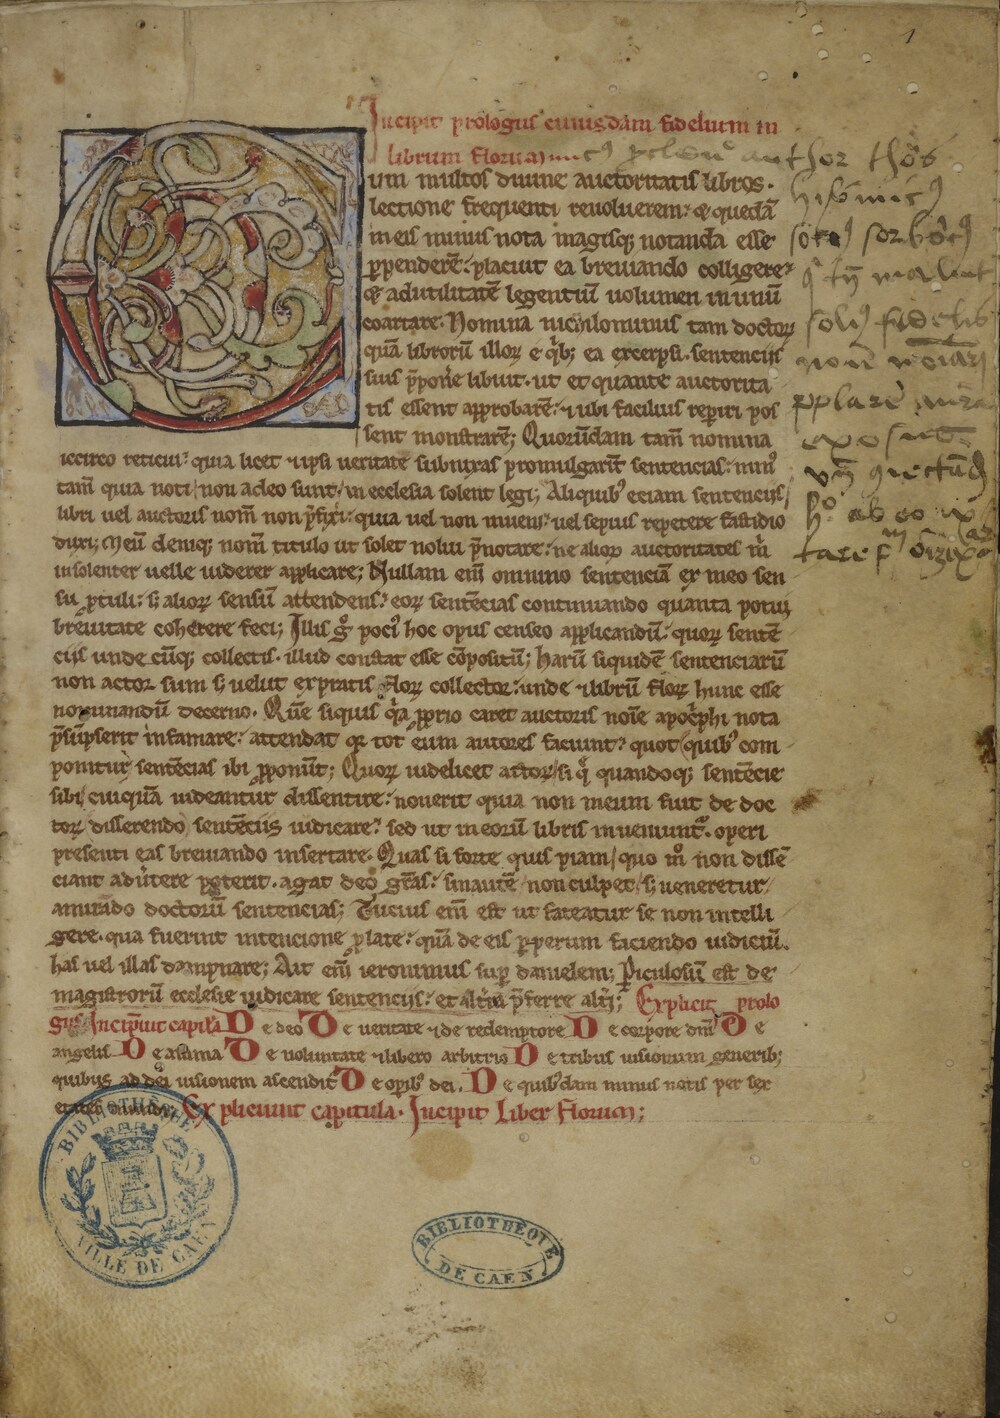 1
Incipit prologus cuiusdam fidelium in
librum florum
Cum multos diuine auctoritatis libros.
lectione frequenti reuoluerem: & quedã
meis minus nota magisq; notanda esse
ꝑpenderẽ: placuit ea breuiando colligere
& adutilitatẽ legentiũ uolumen in unũ
coartare. Nomina nichilominus tam doctoꝝ
quã librorũ illoꝝ e qͥb; ea excerpsi. sentenciis
suis p̃poñe libuit. ut et quante auctorita
tis essent approbarẽ: & ubi facilius repiri pos
sent monstrarẽ; Quorũdam tam̃ nomina
iccirco reticui: quia licet & ipsi ueritate subnixas promulgarĩt sentencias: minꝰ
tam̃ quia noti non adeo sunt, in ecclesia solent legi; Aliquibꝰ eciam sentenciis
libri uel auctoris nom̃ non p̃fixi: quia uel non inueni: uel sepius repetere fastidio
duxi; Meũ deniq; nom̃ titulo ut solet nolui p̃notare: ne alioꝝ auctoritates m̃
insolenter uelle uiderer applicare; Nullam em̃ omnino sentenciã ex meo sen
su ꝓtuli: s; alioꝝ sensũ attendens: eoꝝ sentẽcias continuando quanta potui
breuitate coherere feci; Illis gͦ pociꝰ hoc opus censeo applicandũ: quoꝝ sentẽ
ciis unde cũq; collectis. illud constat esse cõpositũ; harũ siquidẽ sentenciarũ
non actor sum s; uelut ex pratis floꝝ collector: unde & librũ floꝝ hunc esse
nominandũ decerno. Quẽ siquis qͥa ꝓprio caret auctoris noĩe apoc̃phi nota
p̃sũpserit infamare: attendat qꝫ tot eum autores faciunt: quot quibꝰ com
ponitur sentẽcias ibi ꝓponũt; Quoꝝ uidelicet actoꝝ si qͣ quandoq; sentẽcie
sibi cuiquã uideantur dissentire: nouerit quia non meum fuit de doc
toꝝ disserendo sentẽciis iudicare: sed ut in eorũ libris inueniunt̃. operi
presenti eas breuiando insertare. Quas si forte quis piam quo mͦ non dissẽ
ciant aduertere poterit. agat deo grãs: sin autẽ non culpet s; ueneretur
amirãdo doctorũ sentencias; Tucius em̃ est ut fateatur se non intelli
gere. qua fuerint intencione ꝓlate: quã de eis ꝑperum faciendo iudiciũ.
has uel illas dampnare; Ait em̃ ieronimus suꝑ danielem; Piculosũ est de
magistrorũ ecclesie iudicare sentenciis: et altͥa p̃ferre altͥi; Explicit prolo
gus Incipiunt capitła De deo De ueritate & de redemptore De corpore dnĩ De
angelis De anima De uoluntate & libero arbitrio De tribus uisionum generib;
quibus ad dei uisionem ascendit̃ De opibꝰ dei. De quibꝰdam minus notis per sex
etates mundi; Expliciunt capitula. Incipit Liber florum;
BIBLIOTHÈQUE
VILLE DE CAEN
BIBLIOTHÈQUE
DE CAEN